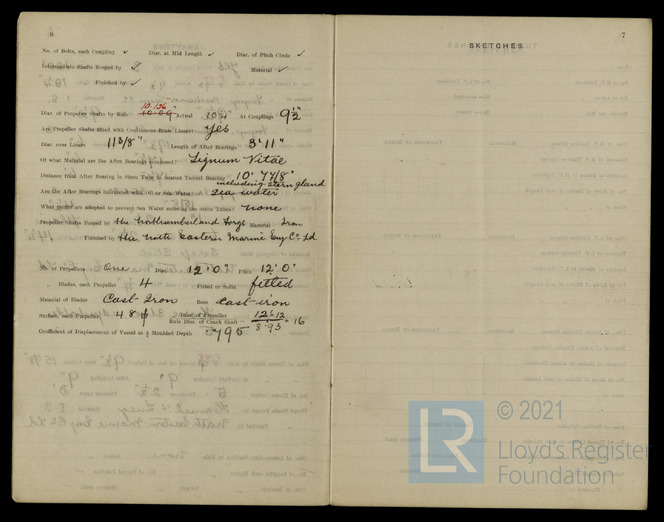 6
No. of Bolts, each Coupling ✓ Diar. at Mid Length ✓ Diar. of Pitch Circle ✓
Intermediate Shafts Forged by ✓ Material ✓
Finished by ✓
10.136
Diar. of Propeller Shafts by Rule 10.09" Actual 10¾" At Couplings 9½"
Are Propeller Shafts fitted with Continuous Brass Liners? Yes
Diar. over Liners 11 3/8" Length of After Bearings 3' 11"
Of what Material are the After Bearings composed? Lignum Vitae
Distance from After Bearing in Stern Tube to nearest Tunnel Bearing
including stern gland
Are the After Bearings lubricated with Oil or Sea Water? Sea water
What means are adopted to prevent Sea Water entering the Stern Tubes? None
Propeller Shafts Forged by the Northumberland Forge Material Iron
Finished by the North Eastern Marine Eng Co. Ld
No. of Propellers One Diar. 12' 0" Pitch 12' 0"
„ Blades, each Propeller 4 Fitted or Solid fitted
Material of Blades Cast Iron Boss Cast iron
Surface, each Propeller 48 ft
Diar. of Propeller
Rule Diar. of Crank Shaft
= 16
Coefficient of Displacement of Vessel at ¾ Moulded Depth .795
7
SKETCHES.
© 2021
LR
Lloyd's Register
Foundation